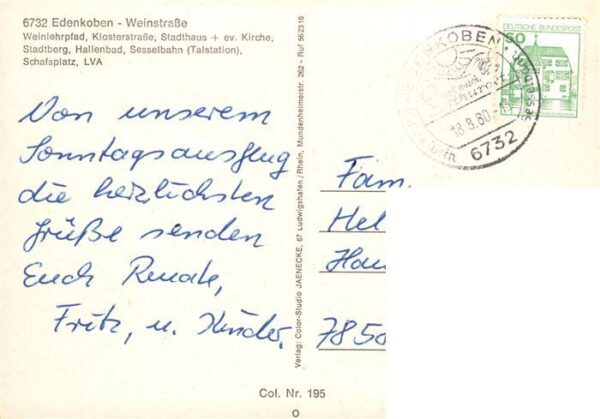 6732 Edenkoben - Weinstraße
Weinlehrpfad, Klosterstraße, Stadthaus + ev. Kirche,
Stadtberg, Hallenbad, Sesselbahn (Talstation),
Schafsplatz, LVA
Von unserem
Sonntagsausflug
die herzlichsten
Grüße senden
Euch Renate,
Fritz, u. Kinder.
Verlag: Color-Studio JAENECKE, 67 Ludwigshafen/Rhein, Mundenheimerstr. 262 - Ruf 562316
50
DEUTSCHE BUNDESPOST
EDENKOBEN
18.8.80
6732
Fam.
Hel
Hau
7850
Col. Nr. 195